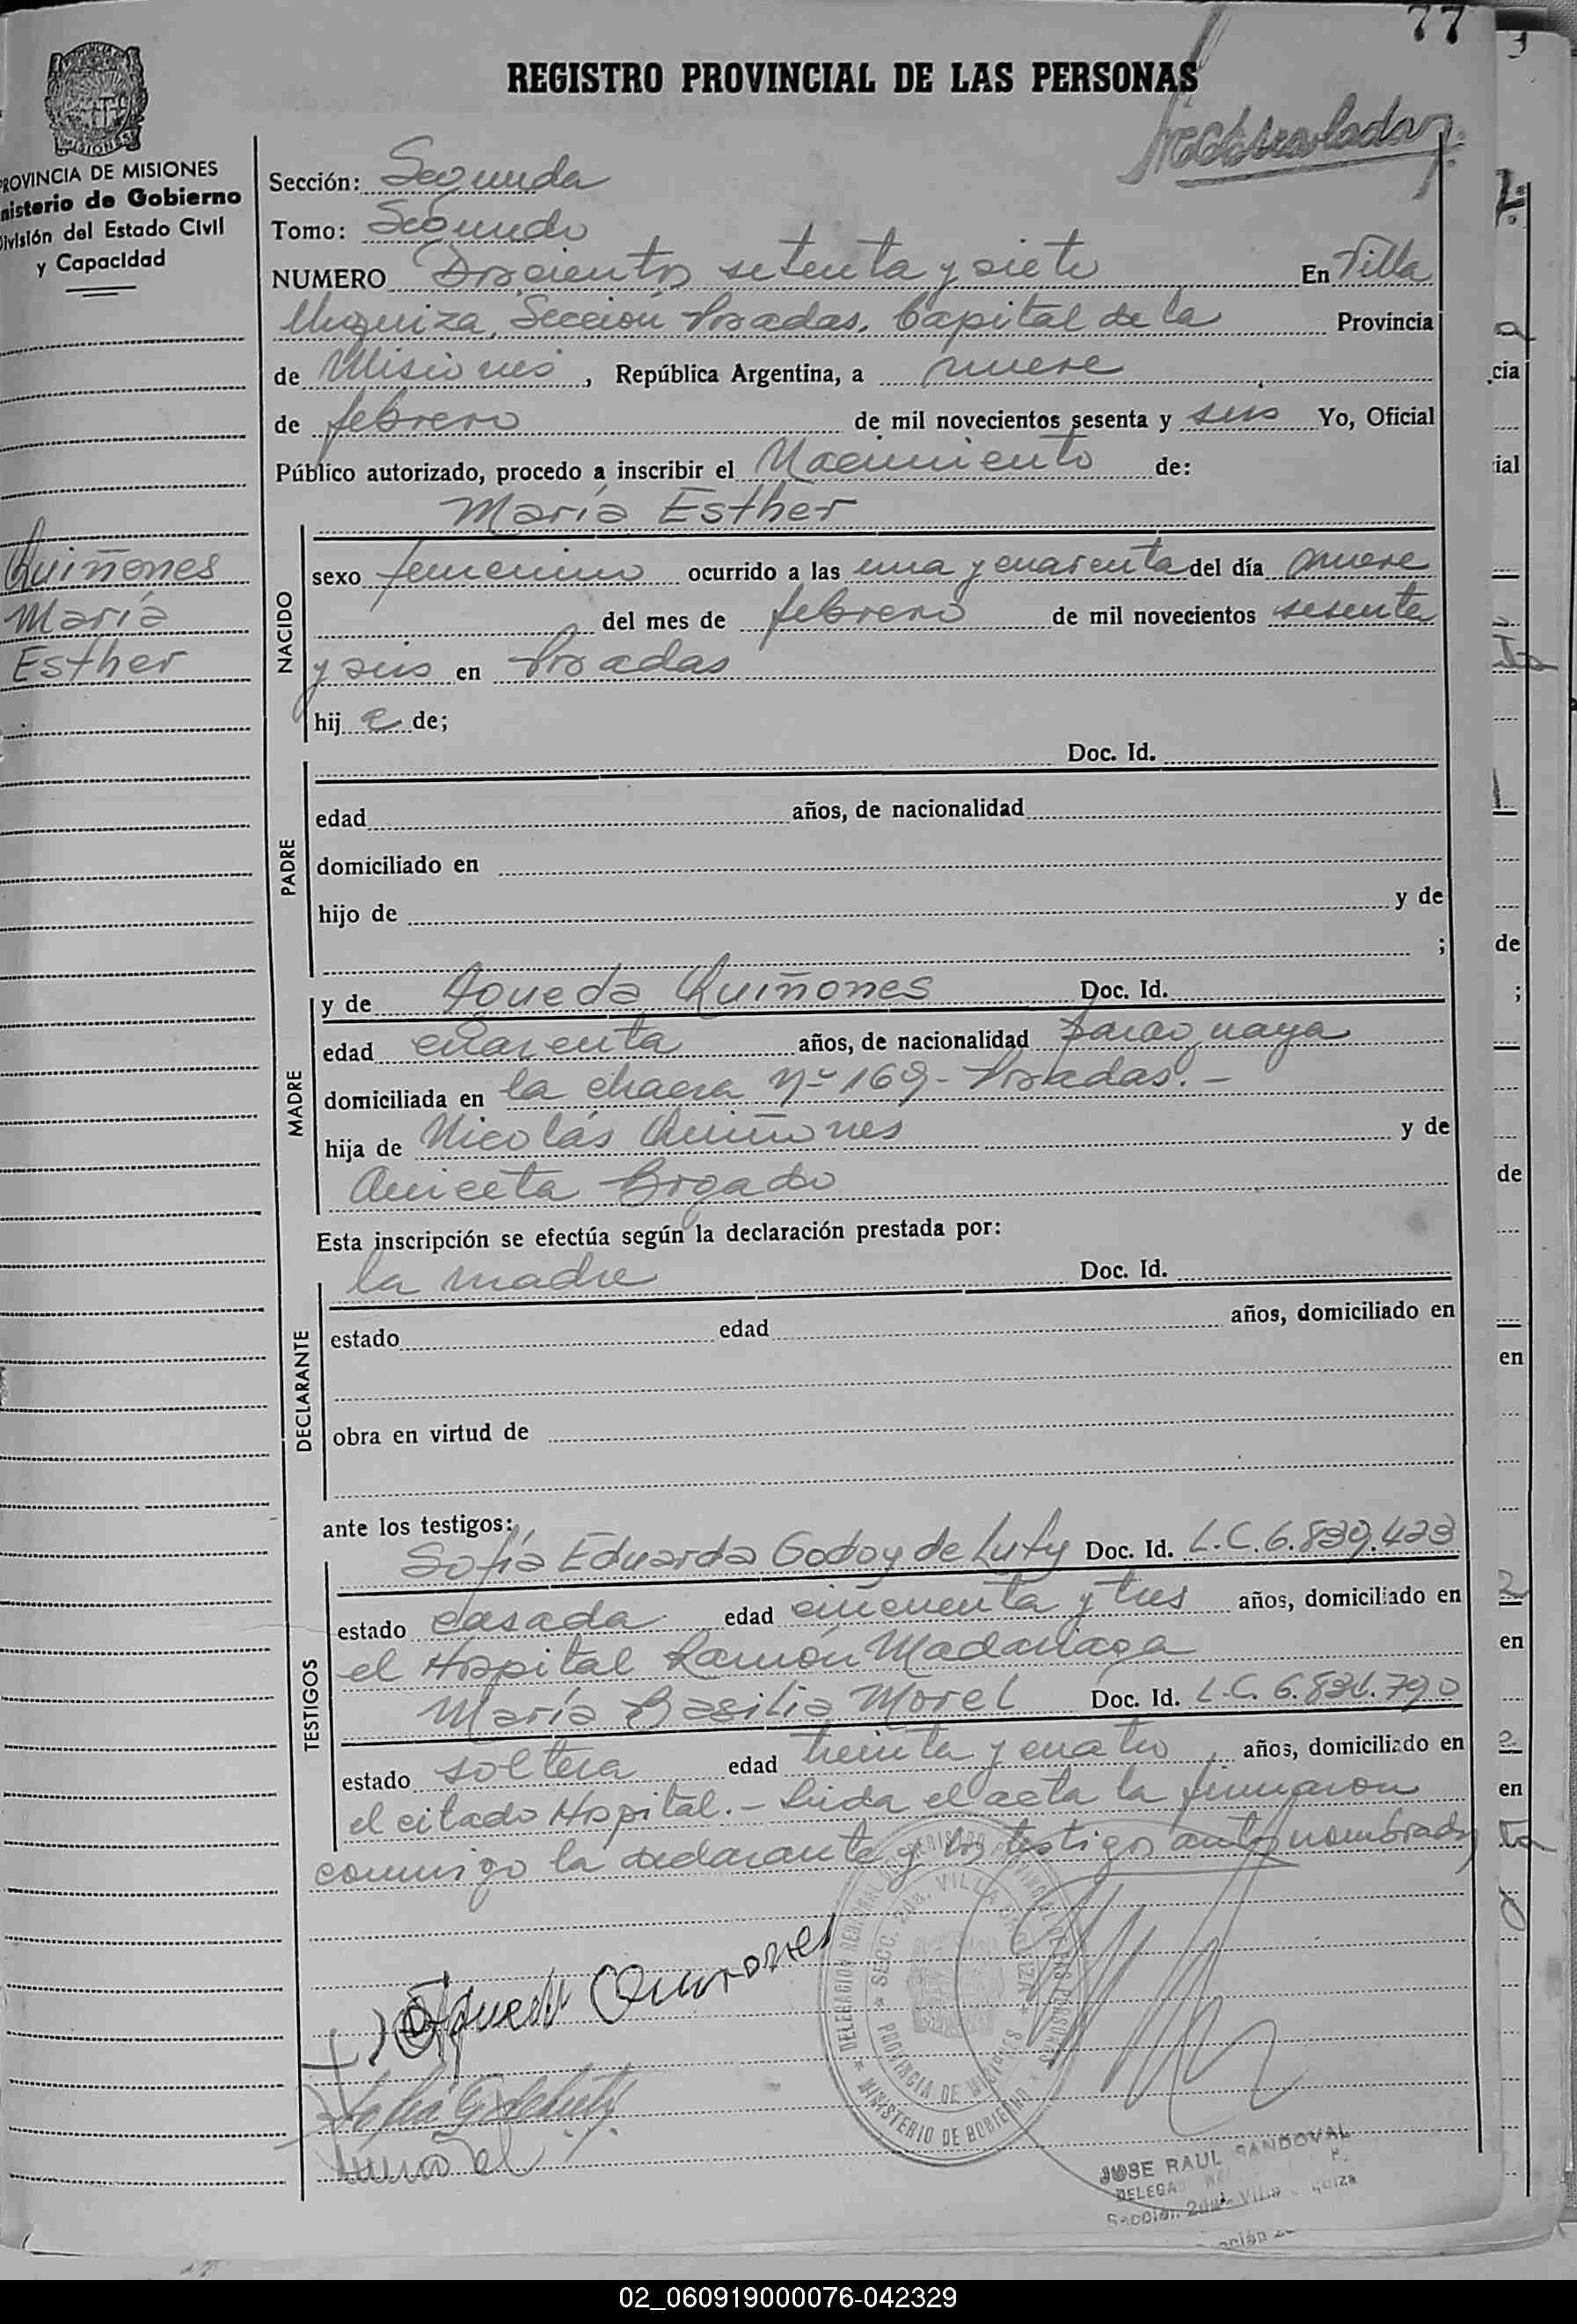 77
REGISTRO PROVINCIAL DE LAS PERSONAS
PROVINCIA DE MISIONES
nisterio de Gobierno
División del Estado Civil
y Capacidad
Sección: Segunda
Tomo: Segundo
NUMERO Doscientos setenta y siete En Villa
Urquiza, Sección Posadas, Capital de la Provincia
de Misiones, República Argentina, a nueve
de febrero de mil novecientos sesenta y seis Yo, Oficial
Público autorizado, procedo a inscribir el Nacimiento de:
María Esther
Quiñones
María
Esther
NACIDO
sexo femenino ocurrido a las una y cuarenta del día nueve
del mes de febrero de mil novecientos sesenta
y seis en Posadas
hija de;
PADRE
Doc. Id.
edad años, de nacionalidad
domiciliado en
hijo de y de
;
MADRE
y de Agueda Quiñones Doc. Id.
edad cuarenta años, de nacionalidad paraguaya
domiciliada en la chacra Nº 169 - Posadas. -
hija de Nicolás Quiñones y de
Aniceta Bogado
Esta inscripción se efectúa según la declaración prestada por:
DECLARANTE
la madre Doc. Id.
estado edad años, domiciliado en
obra en virtud de
ante los testigos:
TESTIGOS
Sofía Eduarda Godoy de Luty Doc. Id. L.C. 6.839.423
estado casada edad cincuenta y tres años, domiciliado en
el Hospital Ramón Madariaga
María Basilia Morel Doc. Id. L.C. 6.831.790
estado soltera edad treinta y cuatro, años, domiciliado en
el citado Hospital. - Leida el acta la firmaron
conmigo la declarante y los testigos antes nombrados
Agueda Quinones
DELEGACION REGISTRO PROVINCIAL DE LAS PERSONAS
MINISTERIO DE GOBIERNO
SECC. 2da. VILLA URQUIZA
PROVINCIA DE MISIONES
JOSE RAUL SANDOVAL
Sección 2da. Villa Urquiza
02_060919000076-042329